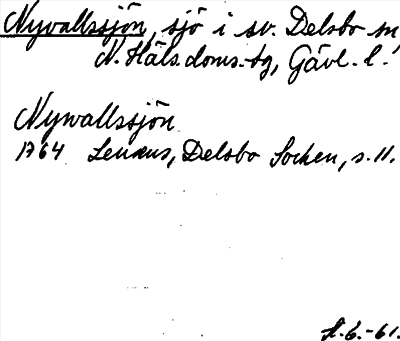 Nyvallssjön, sjö i sv. Delsbo sn,
N. Häls. doms.-tg, Gävl. l.
Nywallssjön
1764 Lenæus, Delsbo Socken, s. 11.
-61.